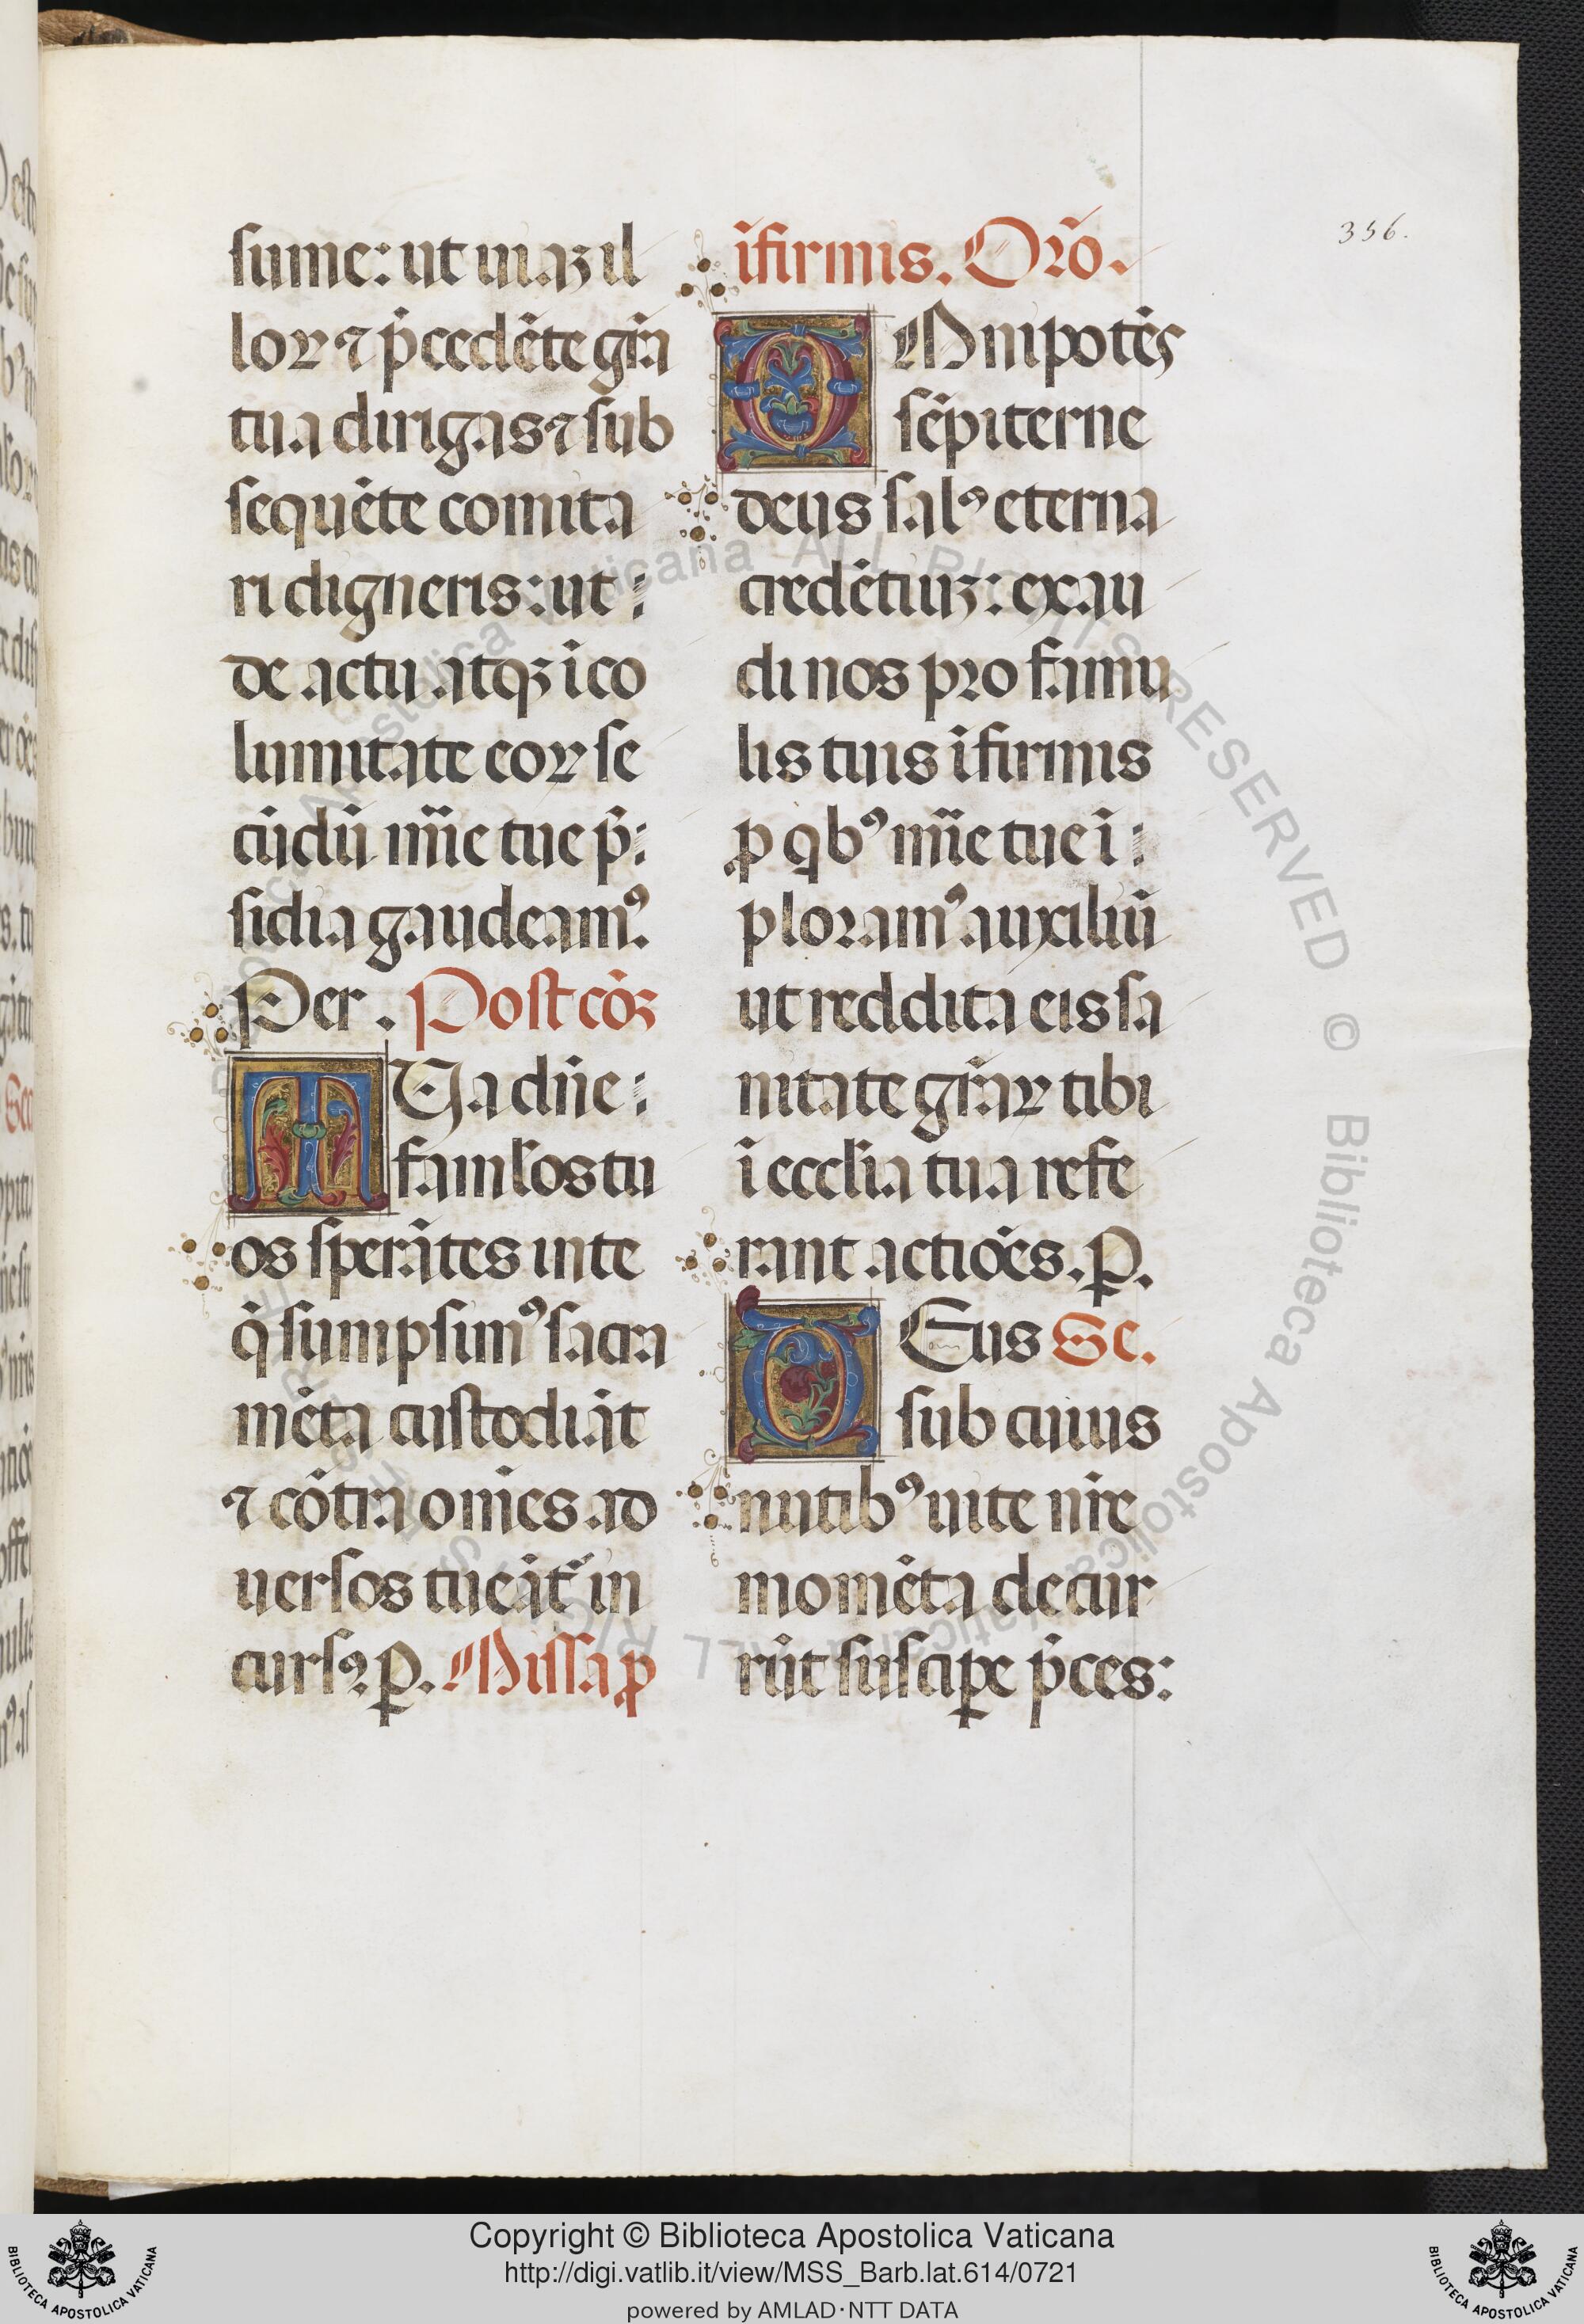 356.
sume: ut uiaꝫ il
loꝝ ⁊ p̄cedēte gr̄a
tua dirigas ⁊ sub
sequēte comita
ri digneris: ut
de actu atqꝫ ico
lumitate eoꝝ se
cūdū mīe tue p̄
sidia gaudeamꝰ.
Per. Post cōꝫ
TUa dn̄e
famlos tu
os sperātes in te
q̄ sumpsimꝰ sacra
mēta custodiāt
⁊ cōtra om̄es ad
uersos tueāt᷑ in
cursꝰ. ꝑ. Missa ꝓ
īfirmis. Orō.
OMnipotēs
sēpiterne
deus salꝰ eterna
credētiuꝫ: exau
di nos pro famu
lis tuis īfirmis
ꝓ qbꝰ mīe tue ī
ploramꝰ auxiliū
ut reddita eis sa
nitate gr̄aꝝ tibi
ī ecclīa tua refe
rant actiōes. ꝑ.
DEus Sc.
sub cuius
nutibꝰ uite nr̄e
momēta decur
rūt suscipe p̄ces:
Copyright © Biblioteca Apostolica Vaticana
http://digi.vatlib.it/view/MSS_Barb.lat.614/0721
powered by AMLAD·NTT DATA
BIBLIOTECA APOSTOLICA VATICANA
BIBLIOTECA APOSTOLICA VATICANA